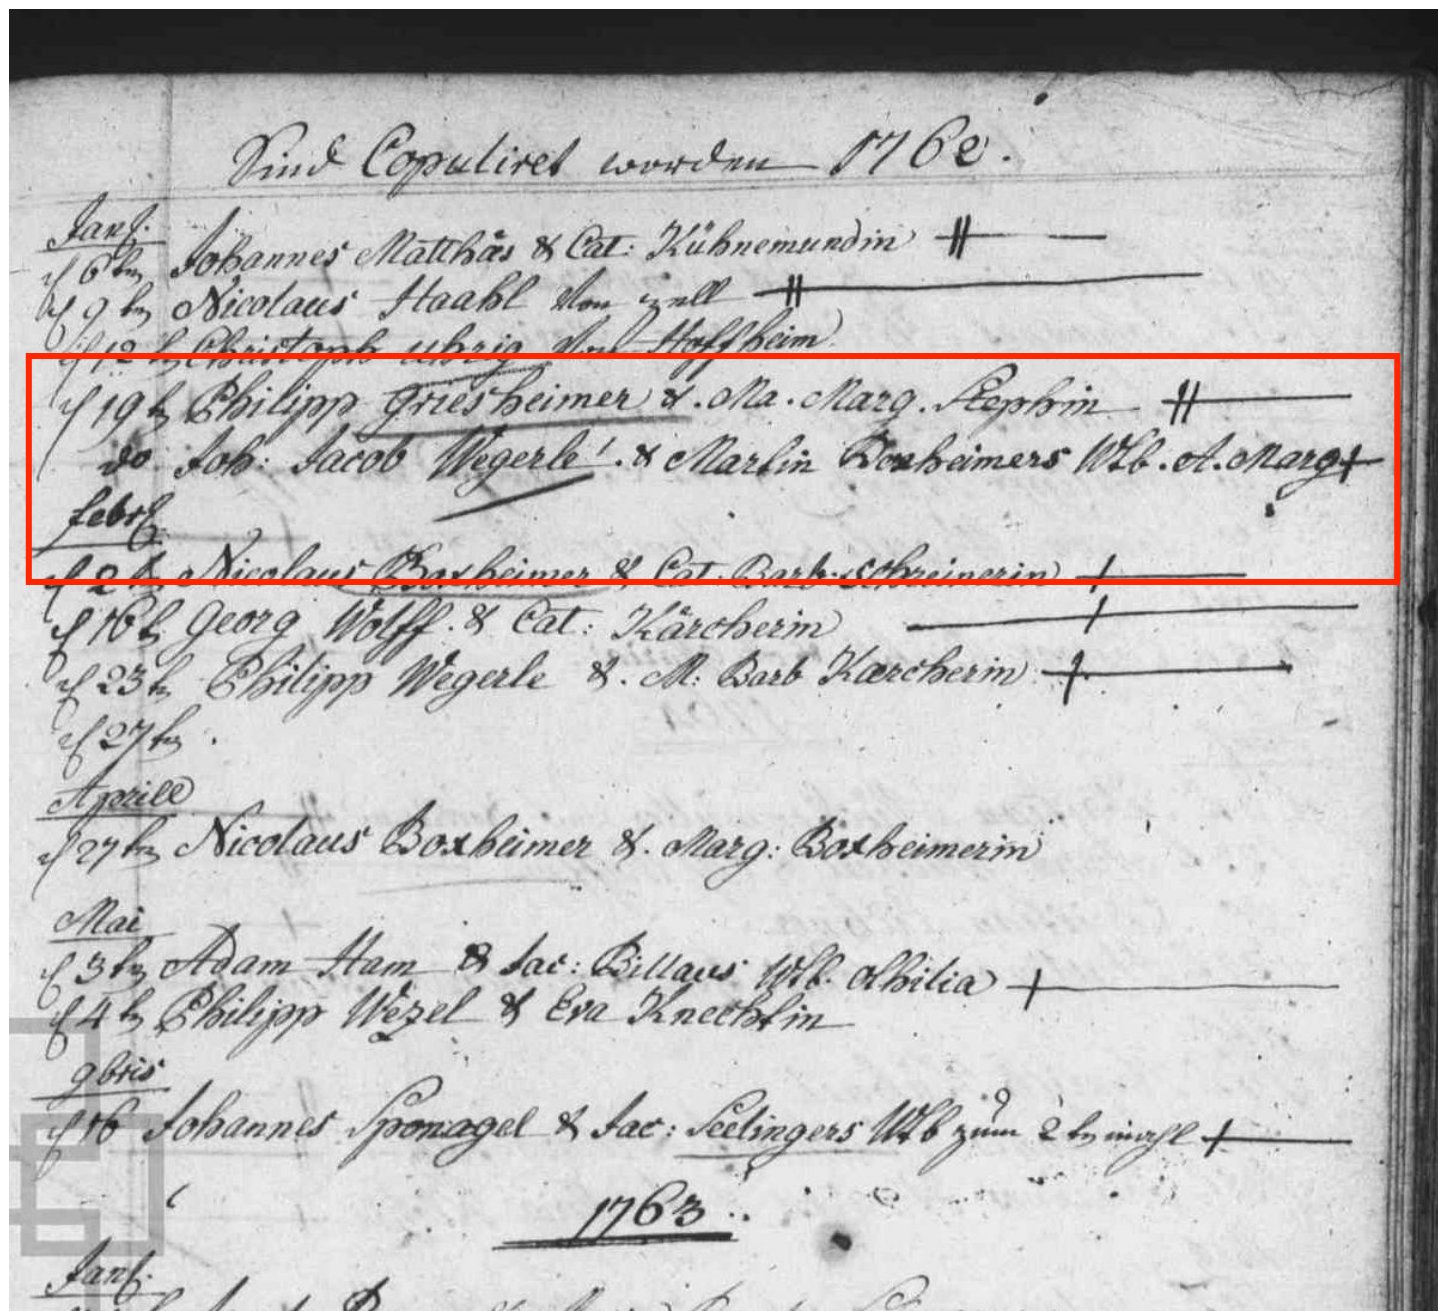 Sind Copuliret worden 1762.
Janr.
d 6ten Johannes Matthäs & Cat: Kühnemundin
d 9ten Nicolaus Haahl von zell
d 12ten Christoph Uhrig von Hoffheim
d 19ten Philipp Griesheimer &. Ma. Marg. Stephin
do Joh: Jacob Wegerle. & Martin Boxheimers Wtb. A. Marg
febr.
d 2ten Nicolaus Boxheimer & Cat. Barb. Schreinerin
d 16ten Georg Wolff. & Cat: Kärcherin
d 23ten Philipp Wegerle &. M: Barb Kærcherin
d 27ten.
Aprill
d 27ten Nicolaus Boxheimer &. Marg: Boxheimerin
Mai
d 3ten Adam Ham & Jac: Billaus Wtb. Othilia
d 4ten Philipp Wezel & Eva Knechtin
9bris
d 16 Johannes Sponagel & Jac: Seelingers Wtb zum 2ten mahl
1763.
Janr.